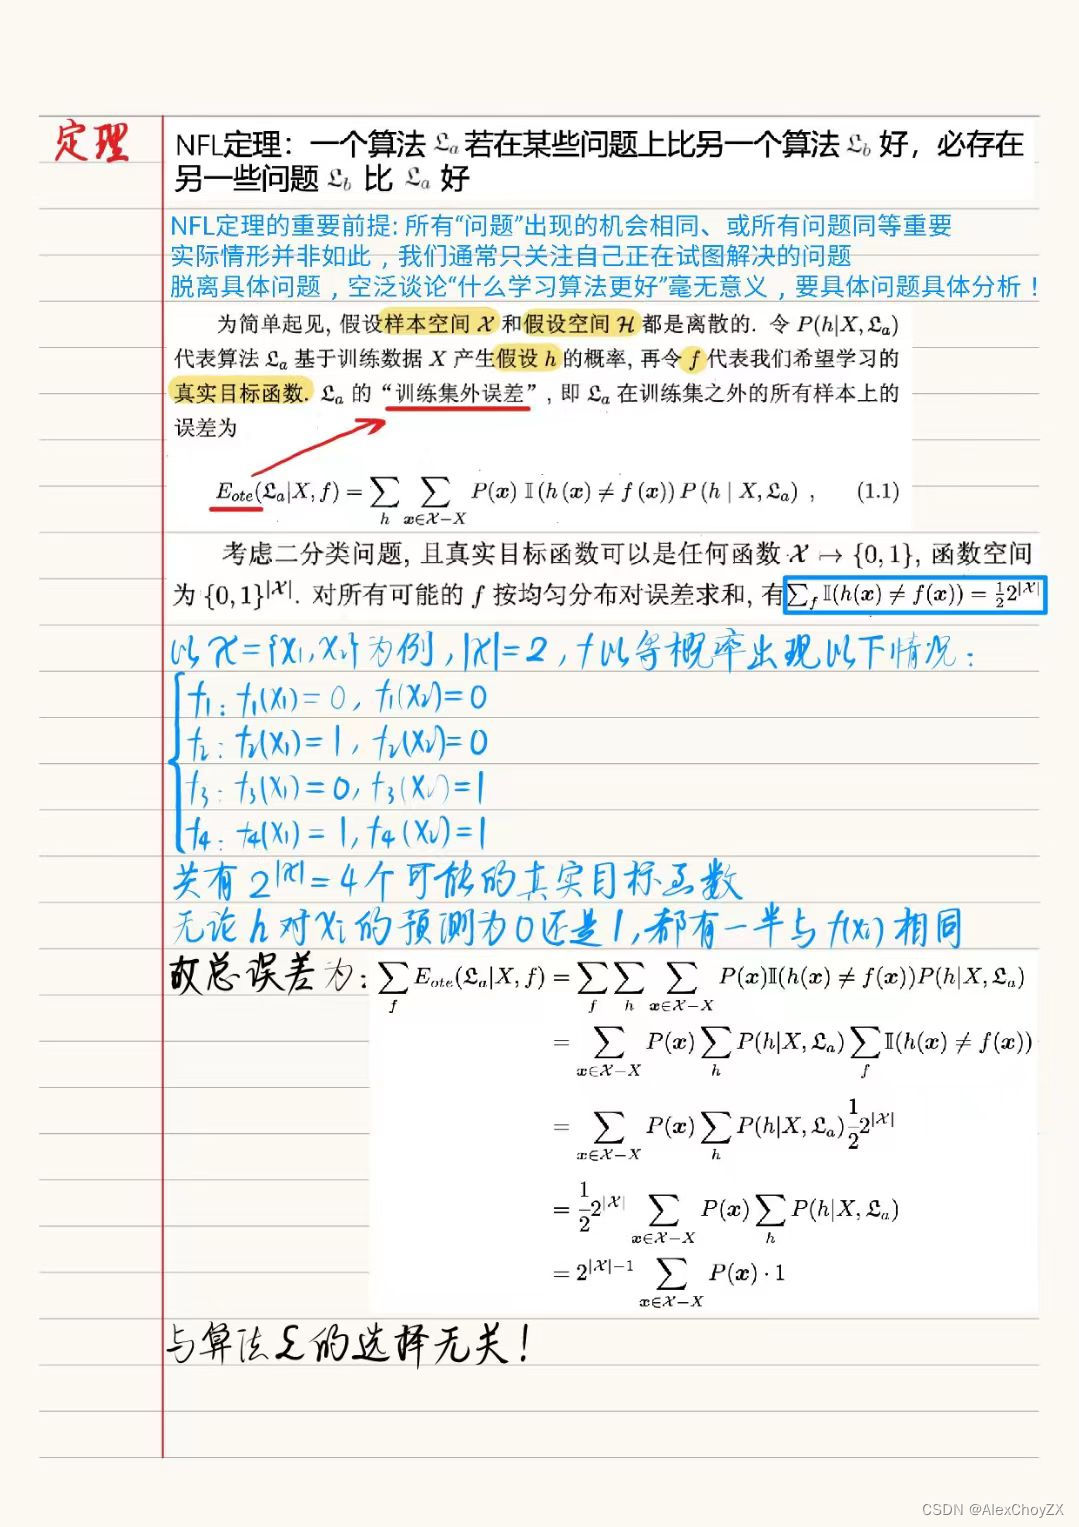 定理
NFL定理：一个算法 𝔏a 若在某些问题上比另一个算法 𝔏b 好，必存在
另一些问题 𝔏b 比 𝔏a 好
NFL定理的重要前提: 所有“问题”出现的机会相同、或所有问题同等重要
实际情形并非如此，我们通常只关注自己正在试图解决的问题
脱离具体问题，空泛谈论“什么学习算法更好”毫无意义，要具体问题具体分析！
为简单起见, 假设样本空间 𝒳 和假设空间 ℋ 都是离散的. 令 P(h|X, 𝔏a)
代表算法 𝔏a 基于训练数据 X 产生假设 h 的概率, 再令 f 代表我们希望学习的
真实目标函数. 𝔏a 的“训练集外误差”, 即 𝔏a 在训练集之外的所有样本上的
误差为
E_ote(𝔏a|X, f) = ∑_h ∑_{x∈𝒳−X} P(x) 𝕀(h(x) ≠ f(x)) P(h | X, 𝔏a) , (1.1)
考虑二分类问题, 且真实目标函数可以是任何函数 𝒳 ↦ {0,1}, 函数空间
为 {0,1}^|𝒳|. 对所有可能的 f 按均匀分布对误差求和, 有 ∑_f 𝕀(h(x) ≠ f(x)) = ½2^|𝒳|
以 𝒳={x₁,x₂}为例, |𝒳|=2, f以等概率出现以下情况:
f₁: f₁(x₁)=0, f₁(x₂)=0
f₂: f₂(x₁)=1, f₂(x₂)=0
f₃: f₃(x₁)=0, f₃(x₂)=1
f₄: f₄(x₁)=1, f₄(x₂)=1
共有 2^|𝒳|=4个可能的真实目标函数
无论h对xᵢ的预测为0还是1, 都有一半与f(xᵢ)相同
故总误差为: ∑_f E_ote(𝔏a|X, f) = ∑_f ∑_h ∑_{x∈𝒳−X} P(x)𝕀(h(x) ≠ f(x))P(h|X, 𝔏a)
= ∑_{x∈𝒳−X} P(x) ∑_h P(h|X, 𝔏a) ∑_f 𝕀(h(x) ≠ f(x))
= ∑_{x∈𝒳−X} P(x) ∑_h P(h|X, 𝔏a) ½2^|𝒳|
= ½2^|𝒳| ∑_{x∈𝒳−X} P(x) ∑_h P(h|X, 𝔏a)
= 2^{|𝒳|−1} ∑_{x∈𝒳−X} P(x) · 1
与算法𝔏的选择无关!
CSDN @AlexChoyZX